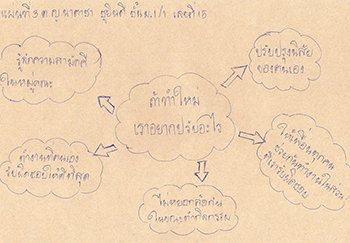 แผนที่ 3 ด.ญ.นาตาชา สุยินดี ชั้นม.1/1 เลขที่ 15
รู้จักความสามัคคี
ในหมู่คณะ
ปรับปรุงนิสัย
ของตนเอง
ถ้าทำใหม่
เราอยากปรับอะไร
ทำงานที่ตนเอง
รับผิดชอบให้ดีที่สุด
ให้เพื่อนทุกคน
ช่วยกันทำงานในส่วน
ที่เรารับผิดชอบ
ไม่หยอกล้อกัน
ในขณะทำกิจกรรม